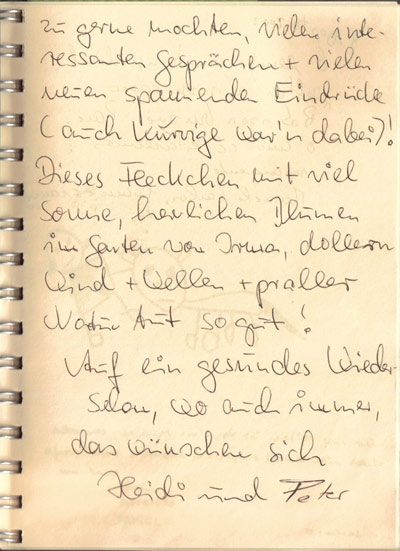 zu gerne mochten, vielen inte-
ressanten Gesprächen + vielen
neuen spannenden Eindrücke
(auch kurvige war'n dabei)!
Dieses Fleckchen mit viel
Sonne, herrlichen Blumen
im Garten von Irma, dollem
Wind + Wellen + praller
Natur tut so gut!
Auf ein gesundes Wieder-
sehn, wo auch immer,
das wünschen sich
Heidi und Peter